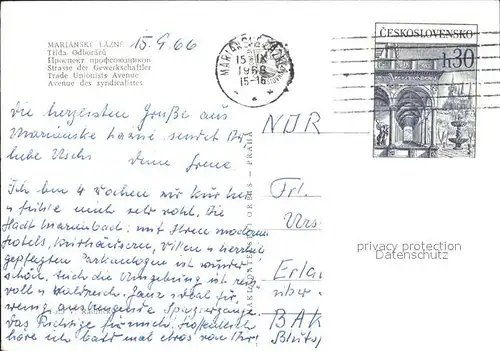 MARIÁNSKÉ LÁZNĚ
Třída Odborářů
Проспект профсоюзников
Strasse der Gewerkschaftler
Trade Unionists Avenue
Avenue des syndicalistes
15.9.66
MARIÁNSKÉ LÁZNĚ
15. IX
1966
15-16
ČESKOSLOVENSKO
h30
Die herzlichsten Grüße aus
Marienske Lazně sendet Dir
liebe Uschi Deine Irene
NDR
Ich bin 4 Wochen zur Kur hier
+ fühle mich sehr wohl. Die
Stadt Marienbad mit Ihren modernen
Hotels, Kurhäusern, Villen + herrlich
gepflegten Parkanlagen ist wunder
schön. Auch die Umgebung ist reiz
voll + waldreich. Ganz ideal für
wenig anstrengende Spaziergänge.
Das Richtige für mich. Hoffentlich
höre ich bald mal etwas von Dir.
ORBIS - PRAHA
Frl.
Urs
Erla
über
BAK
privacy protection
Datenschutz